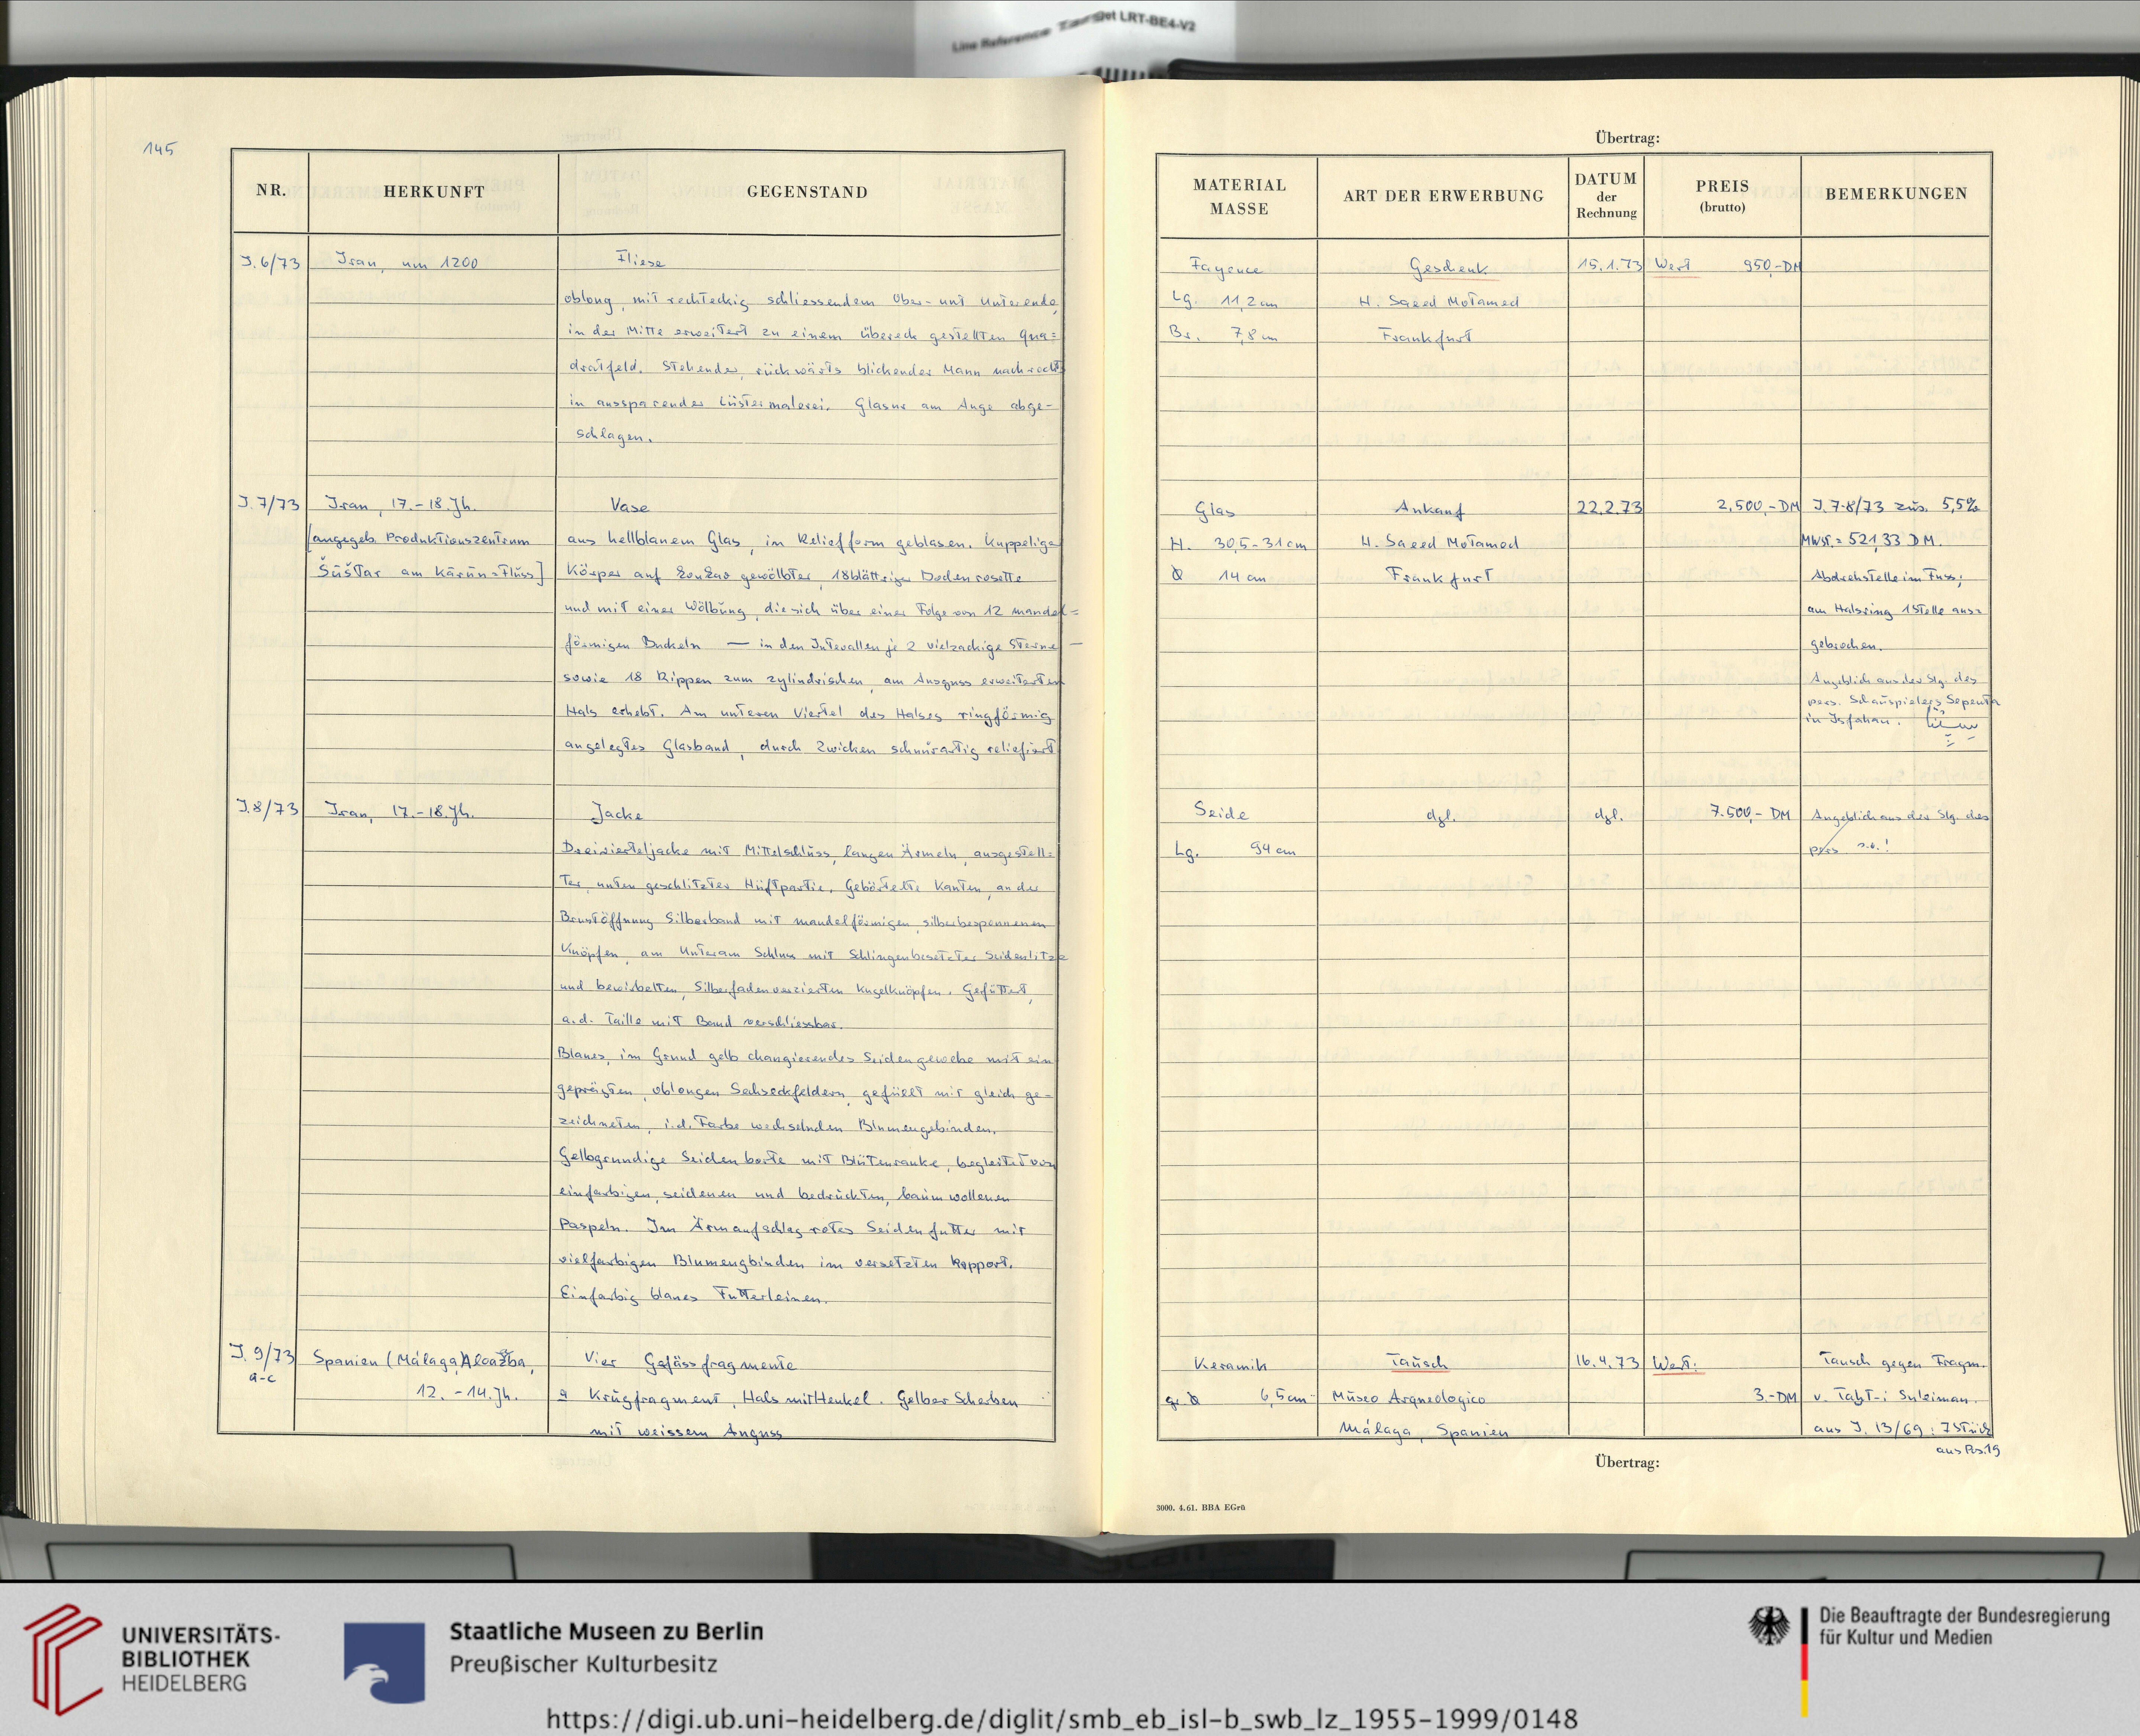 Line Reference Target LRT-BE4-V2
145
NR.
HERKUNFT
GEGENSTAND
J.6/73
Iran, um 1200
Fliese
oblong, mit rechteckig schliessendem Ober- und Unterende,
in der Mitte erweitert zu einem übereck gestellten Qua=
dratfeld. Stehender, rückwärts blickender Mann nach rechts
in aussparender Lüstermalerei. Glasur am Auge abge-
schlagen.
J.7/73
Iran, 17.-18. Jh.
[angegeb. Produktionszentrum
Šūštar am Kārūn=Fluss]
Vase
aus hellblauem Glas, in Reliefform geblasen. Kuppeliger
Körper auf konkav gewölbter, 18blättriger Bodenrosette
und mit einer Wölbung, die sich über einer Folge von 12 mandel=
förmigen Buckeln — in den Intevallen je 2 vielzackige Sterne —
sowie 18 Rippen zum zylindrischen, am Ausguss erweiterten
Hals erhebt. Am unteren Viertel des Halses ringförmig
angelegtes Glasband, durch Zwicken schnurartig reliefiert
J.8/73
Iran, 17.-18. Jh.
Jacke
Dreivierteljacke mit Mittelschluss, langen Ärmeln, ausgestell=
ter, unten geschlitzter Hüftpartie. Gebörtelte Kanten, an der
Brustöffnung Silberband mit mandelförmigen, silberbesponnenen
Knöpfen, am Unterarm Schluss mit Schlingenbesetzter Seidenlitze
und bewirbelten, Silberfadenverzierten Kugelknöpfen. Gefüttert,
a.d. Taille mit Band verschliessbar.
Blaues, im Grund gelb changierendes Seidengewebe mit ein
geprägten, oblongen Sechseckfeldern, gefüllt mit gleich ge-
zeichneten, i.d. Farbe wechselnden Blumengebinden.
Gelbgrundige Seidenborte mit Blütenranke, begleitet von
einfarbigen, seidenen und bedruckten, baumwollenen
Paspeln. Im Ärmaufschlag rotes Seidenfutter mit
vielfarbigen Blumengbinden im versetzten Rapport.
Einfarbig blaues Futterleinen.
J.9/73
a-c
Spanien (Málaga, Alcazba,
12.-14. Jh.
Vier Gefässfragmente
a Krugfragment, Hals mit Henkel. Gelber Scherben
mit weissem Anguss
Übertrag:
MATERIAL
MASSE
ART DER ERWERBUNG
DATUM
der
Rechnung
PREIS
(brutto)
BEMERKUNGEN
Fayence
Lg. 11,2 cm
Br. 7,8 cm
Geschenk
H. Saeed Motamed
Frankfurt
15.1.73
Wert 950,-DM
Glas
H. 30,5-31 cm
Ø 14 cm
Ankauf
H. Saeed Motamed
Frankfurt
22.2.73
2.500,-DM
J.7-8/73 zus. 5,5%
MWSt. = 521,33 DM.
Abdrehstelle im Fuss;
am Halsring 1 Stelle aus=
gebrochen.
Angeblich aus der Slg. des
pers. Schauspielers Sepenta
in Isfahan.
Seide
Lg. 94 cm
dgl.
dgl.
7.500,- DM
Angeblich aus der Slg. des
pers s.o.!
Keramik
gr. Ø 6,5 cm
Tausch
Museo Arqueologico
Málaga, Spanien
16.4.73
Wert:
3.-DM
Tausch gegen Fragm.
v. Taḫt-i Suleiman.
aus J. 13/69: 7 Stück
aus Pos. 19
Übertrag:
3000. 4.61. BBA EGrü
UNIVERSITÄTS-
BIBLIOTHEK
HEIDELBERG
Staatliche Museen zu Berlin
Preußischer Kulturbesitz
Die Beauftragte der Bundesregierung
für Kultur und Medien
https://digi.ub.uni-heidelberg.de/diglit/smb_eb_isl-b_swb_lz_1955-1999/0148